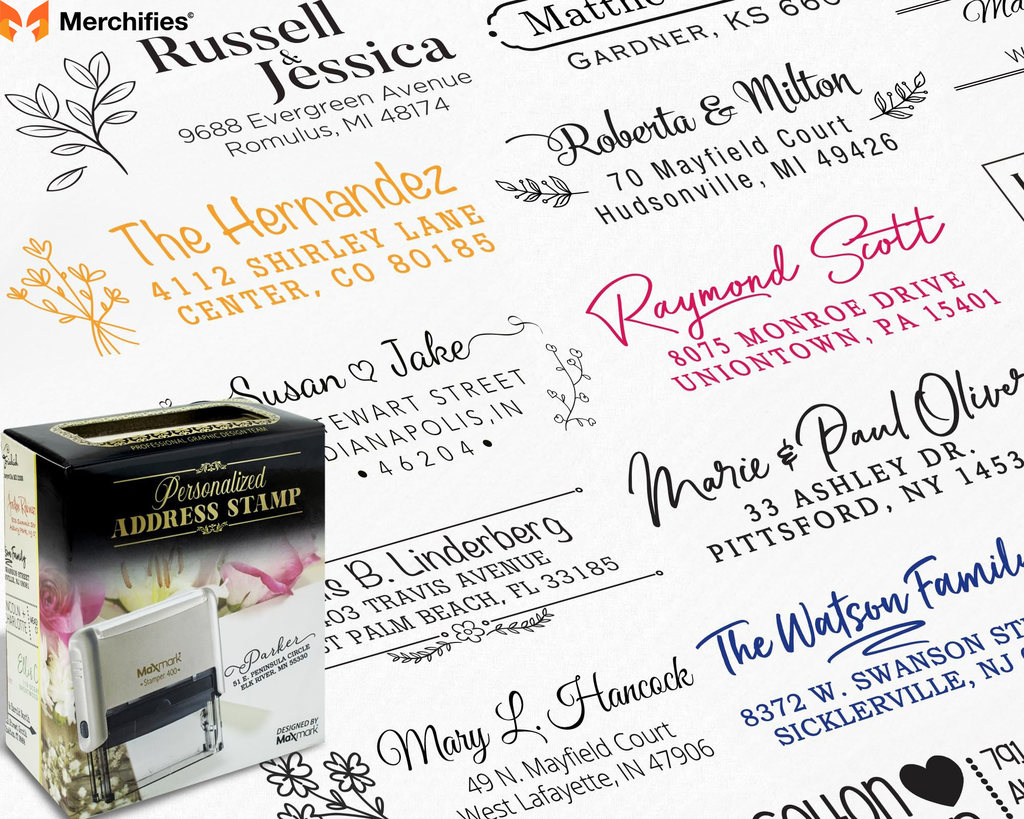 Merchifies®
Russell
&
Jessica
9688 Evergreen Avenue
Romulus, MI 48174
GARDNER, KS
Roberta & Milton
70 Mayfield Court
Hudsonville, MI 49426
The Hernandez
4112 SHIRLEY LANE
CENTER, CO 80185
Raymond Scott
8075 MONROE DRIVE
UNIONTOWN, PA 15401
Susan ♡ Jake
STREET
IN
• 46204 •
Marie & Paul Oliver
33 ASHLEY DR.
PITTSFORD, NY 1453
B. Linderberg
TRAVIS AVENUE
PALM BEACH, FL 33185
The Watson Family
8372 W. SWANSON
SICKLERVILLE, NJ
Mary L. Hancock
49 N. Mayfield Court
West Lafayette, IN 47906
791
PROFESSIONAL GRAPHIC DESIGN TEAM
Personalized
ADDRESS STAMP
Maxmark
• Stamper 400 •
Parker
51 E. PENINSULA CIRCLE
ELK RIVER, MN 55330
DESIGNED BY
Maxmark